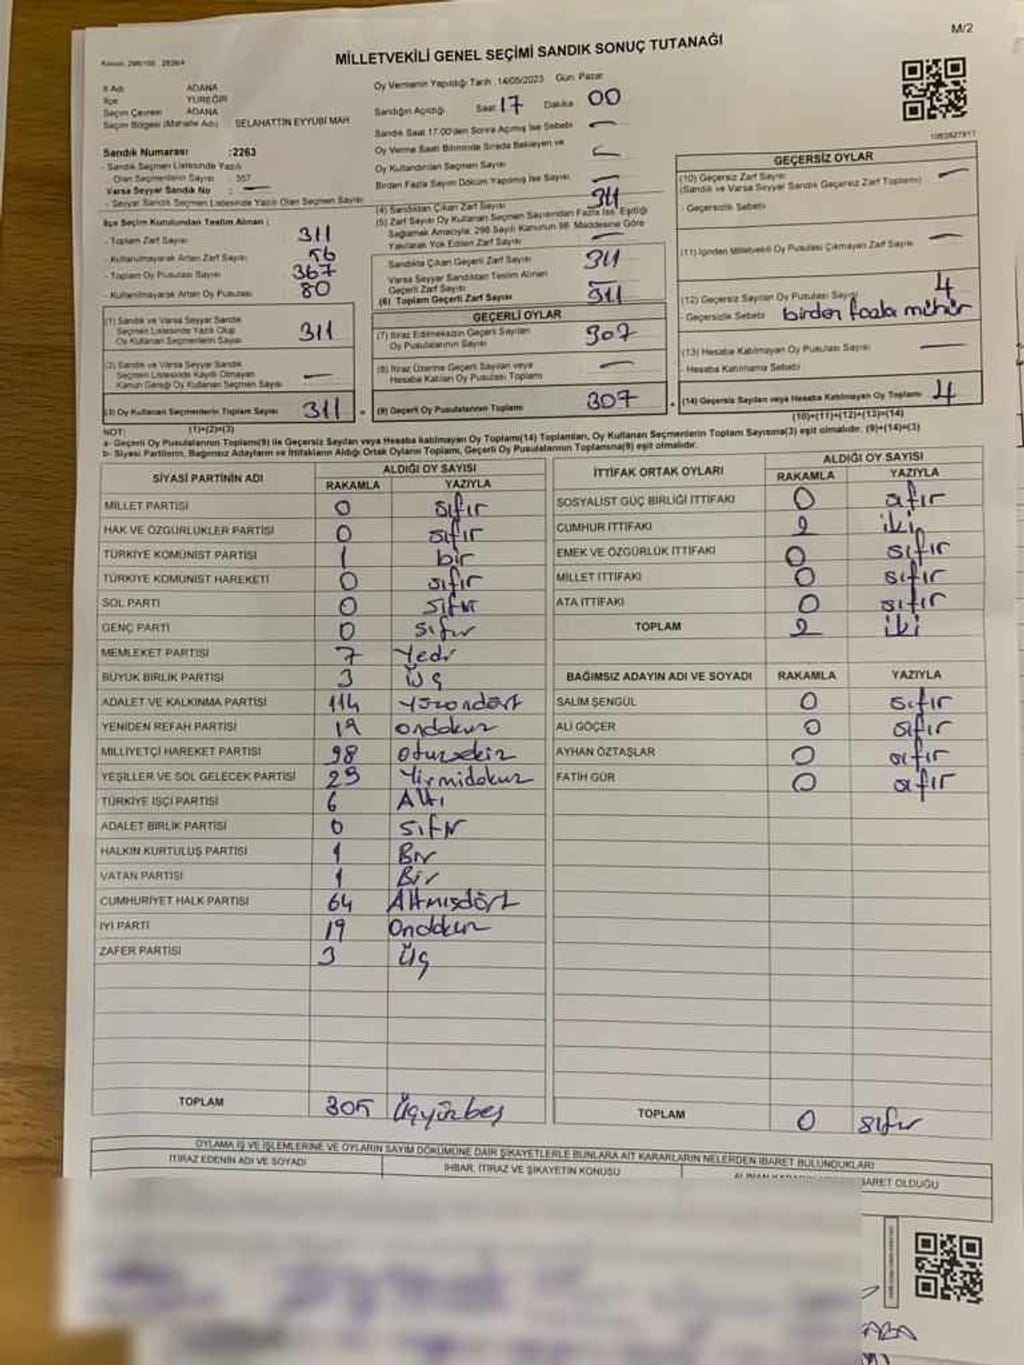 M/2
Kanun: 298/105 2839/4
MİLLETVEKİLİ GENEL SEÇİMİ SANDIK SONUÇ TUTANAĞI
İl Adı ADANA
İlçe YÜREĞİR
Seçim Çevresi ADANA
Seçim Bölgesi (Mahalle Adı) SELAHATTİN EYYUBİ MAH
Sandık Numarası :2263
- Sandık Seçmen Listesinde Yazılı
Olan Seçmenlerin Sayısı 357
Varsa Seyyar Sandık No : —
- Seyyar Sandık Seçmen Listesinde Yazılı Olan Seçmen Sayısı
İlçe Seçim Kurulundan Teslim Alınan :
- Toplam Zarf Sayısı 311
- Kullanılmayarak Artan Zarf Sayısı 56
- Toplam Oy Pusulası Sayısı 367
- Kullanılmayarak Artan Oy Pusulası 80
(1) Sandık ve Varsa Seyyar Sandık
Seçmen Listesinde Yazılı Olup
Oy Kullanan Seçmenlerin Sayısı 311
(2) Sandık ve Varsa Seyyar Sandık
Seçmen Listesinde Kayıtlı Olmayan
Kanun Gereği Oy Kullanan Seçmen Sayısı —
(3) Oy Kullanan Seçmenlerin Toplam Sayısı 311
(1)+(2)=(3)
Oy Vermenin Yapıldığı Tarih :14/05/2023 Gün: Pazar
Sandığın Açıldığı Saat 17 Dakika 00
Sandık Saat 17.00'den Sonra Açılmış İse Sebebi —
Oy Verme Saati Bitiminde Sırada Bekleyen ve
Oy Kullandırılan Seçmen Sayısı
Birden Fazla Sayım Döküm Yapılmış İse Sayısı —
(4) Sandıktan Çıkan Zarf Sayısı 311
(5) Zarf Sayısı Oy Kullanan Seçmen Sayısından Fazla İse, Eşitliği
Sağlamak Amacıyla, 298 Sayılı Kanunun 98. Maddesine Göre
Yakılarak Yok Edilen Zarf Sayısı —
Sandıkta Çıkan Geçerli Zarf Sayısı 311
Varsa Seyyar Sandıktan Teslim Alınan
Geçerli Zarf Sayısı —
(6) Toplam Geçerli Zarf Sayısı 311
GEÇERLİ OYLAR
(7) İtiraz Edilmeksizin Geçerli Sayılan
Oy Pusulalarının Sayısı 307
(8) İtiraz Üzerine Geçerli Sayılan veya
Hesaba Katılan Oy Pusulası Toplamı —
(9) Geçerli Oy Pusulalarının Toplamı 307
1083827917
GEÇERSİZ OYLAR
(10) Geçersiz Zarf Sayısı —
(Sandık ve Varsa Seyyar Sandık Geçersiz Zarf Toplamı)
- Geçersizlik Sebebi
(11) İçinden Milletvekili Oy Pusulası Çıkmayan Zarf Sayısı —
(12) Geçersiz Sayılan Oy Pusulası Sayısı 4
- Geçersizlik Sebebi birden fazla mühür
(13) Hesaba Katılmayan Oy Pusulası Sayısı —
- Hesaba Katılmama Sebebi
(14) Geçersiz Sayılan veya Hesaba Katılmayan Oy Toplamı 4
(10)+(11)+(12)+(13)=(14)
NOT:
a- Geçerli Oy Pusulalarının Toplamı(9) ile Geçersiz Sayılan veya Hesaba katılmayan Oy Toplamı(14) Toplamları, Oy Kullanan Seçmenlerin Toplam Sayısına(3) eşit olmalıdır. (9)+(14)=(3)
b- Siyasi Partilerin, Bağımsız Adayların ve İttifakların Aldığı Ortak Oyların Toplamı, Geçerli Oy Pusulalarının Toplamına(9) eşit olmalıdır.
SİYASİ PARTİNİN ADI ALDIĞI OY SAYISI
RAKAMLA YAZIYLA
MİLLET PARTİSİ 0 sıfır
HAK VE ÖZGÜRLÜKLER PARTİSİ 0 sıfır
TÜRKİYE KOMÜNİST PARTİSİ 1 bir
TÜRKİYE KOMÜNİST HAREKETİ 0 sıfır
SOL PARTİ 0 sıfır
GENÇ PARTİ 0 sıfır
MEMLEKET PARTİSİ 7 Yedi
BÜYÜK BİRLİK PARTİSİ 3 Üç
ADALET VE KALKINMA PARTİSİ 114 yüzondört
YENİDEN REFAH PARTİSİ 19 ondokuz
MİLLİYETÇİ HAREKET PARTİSİ 38 otuzsekiz
YEŞİLLER VE SOL GELECEK PARTİSİ 29 Yirmidokuz
TÜRKİYE İŞÇİ PARTİSİ 6 Altı
ADALET BİRLİK PARTİSİ 0 sıfır
HALKIN KURTULUŞ PARTİSİ 1 Bir
VATAN PARTİSİ 1 Bir
CUMHURİYET HALK PARTİSİ 64 Altmışdört
İYİ PARTİ 19 Ondokuz
ZAFER PARTİSİ 3 Üç
TOPLAM 305 Üçyüzbeş
İTTİFAK ORTAK OYLARI ALDIĞI OY SAYISI
RAKAMLA YAZIYLA
SOSYALİST GÜÇ BİRLİĞİ İTTİFAKI 0 sıfır
CUMHUR İTTİFAKI 2 iki
EMEK VE ÖZGÜRLÜK İTTİFAKI 0 sıfır
MİLLET İTTİFAKI 0 sıfır
ATA İTTİFAKI 0 sıfır
TOPLAM 2 iki
BAĞIMSIZ ADAYIN ADI VE SOYADI RAKAMLA YAZIYLA
SALİM ŞENGÜL 0 sıfır
ALİ GÖÇER 0 sıfır
AYHAN ÖZTAŞLAR 0 sıfır
FATİH GÜR 0 sıfır
TOPLAM 0 sıfır
OYLAMA İŞ VE İŞLEMLERİNE VE OYLARIN SAYIM DÖKÜMÜNE DAİR ŞİKAYETLERLE BUNLARA AİT KARARLARIN NELERDEN İBARET BULUNDUKLARI
İTİRAZ EDENİN ADI VE SOYADI İHBAR, İTİRAZ VE ŞİKAYETİN KONUSU BARET OLDUĞU